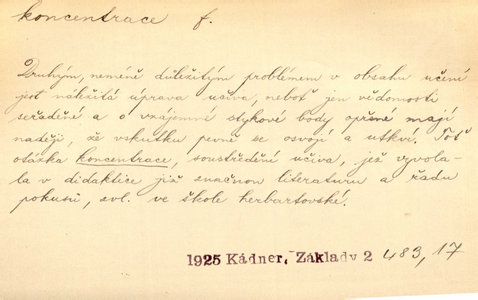 koncentrace f.
Druhým, neméně důležitým problémem v obsahu učení
jest náležitá úprava učiva, neboť jen vědomosti
seřaděné a o vzájemné stykové body opřené mají
naději, že vskutku pevně se osvojí a utkví. Toť
otázka koncentrace, soustředění učiva, jež vyvola-
la v didaktice již značnou literaturu a řadu
pokusů, zvl. ve škole herbartovské.
1925 Kádner, Základy 2 483, 17